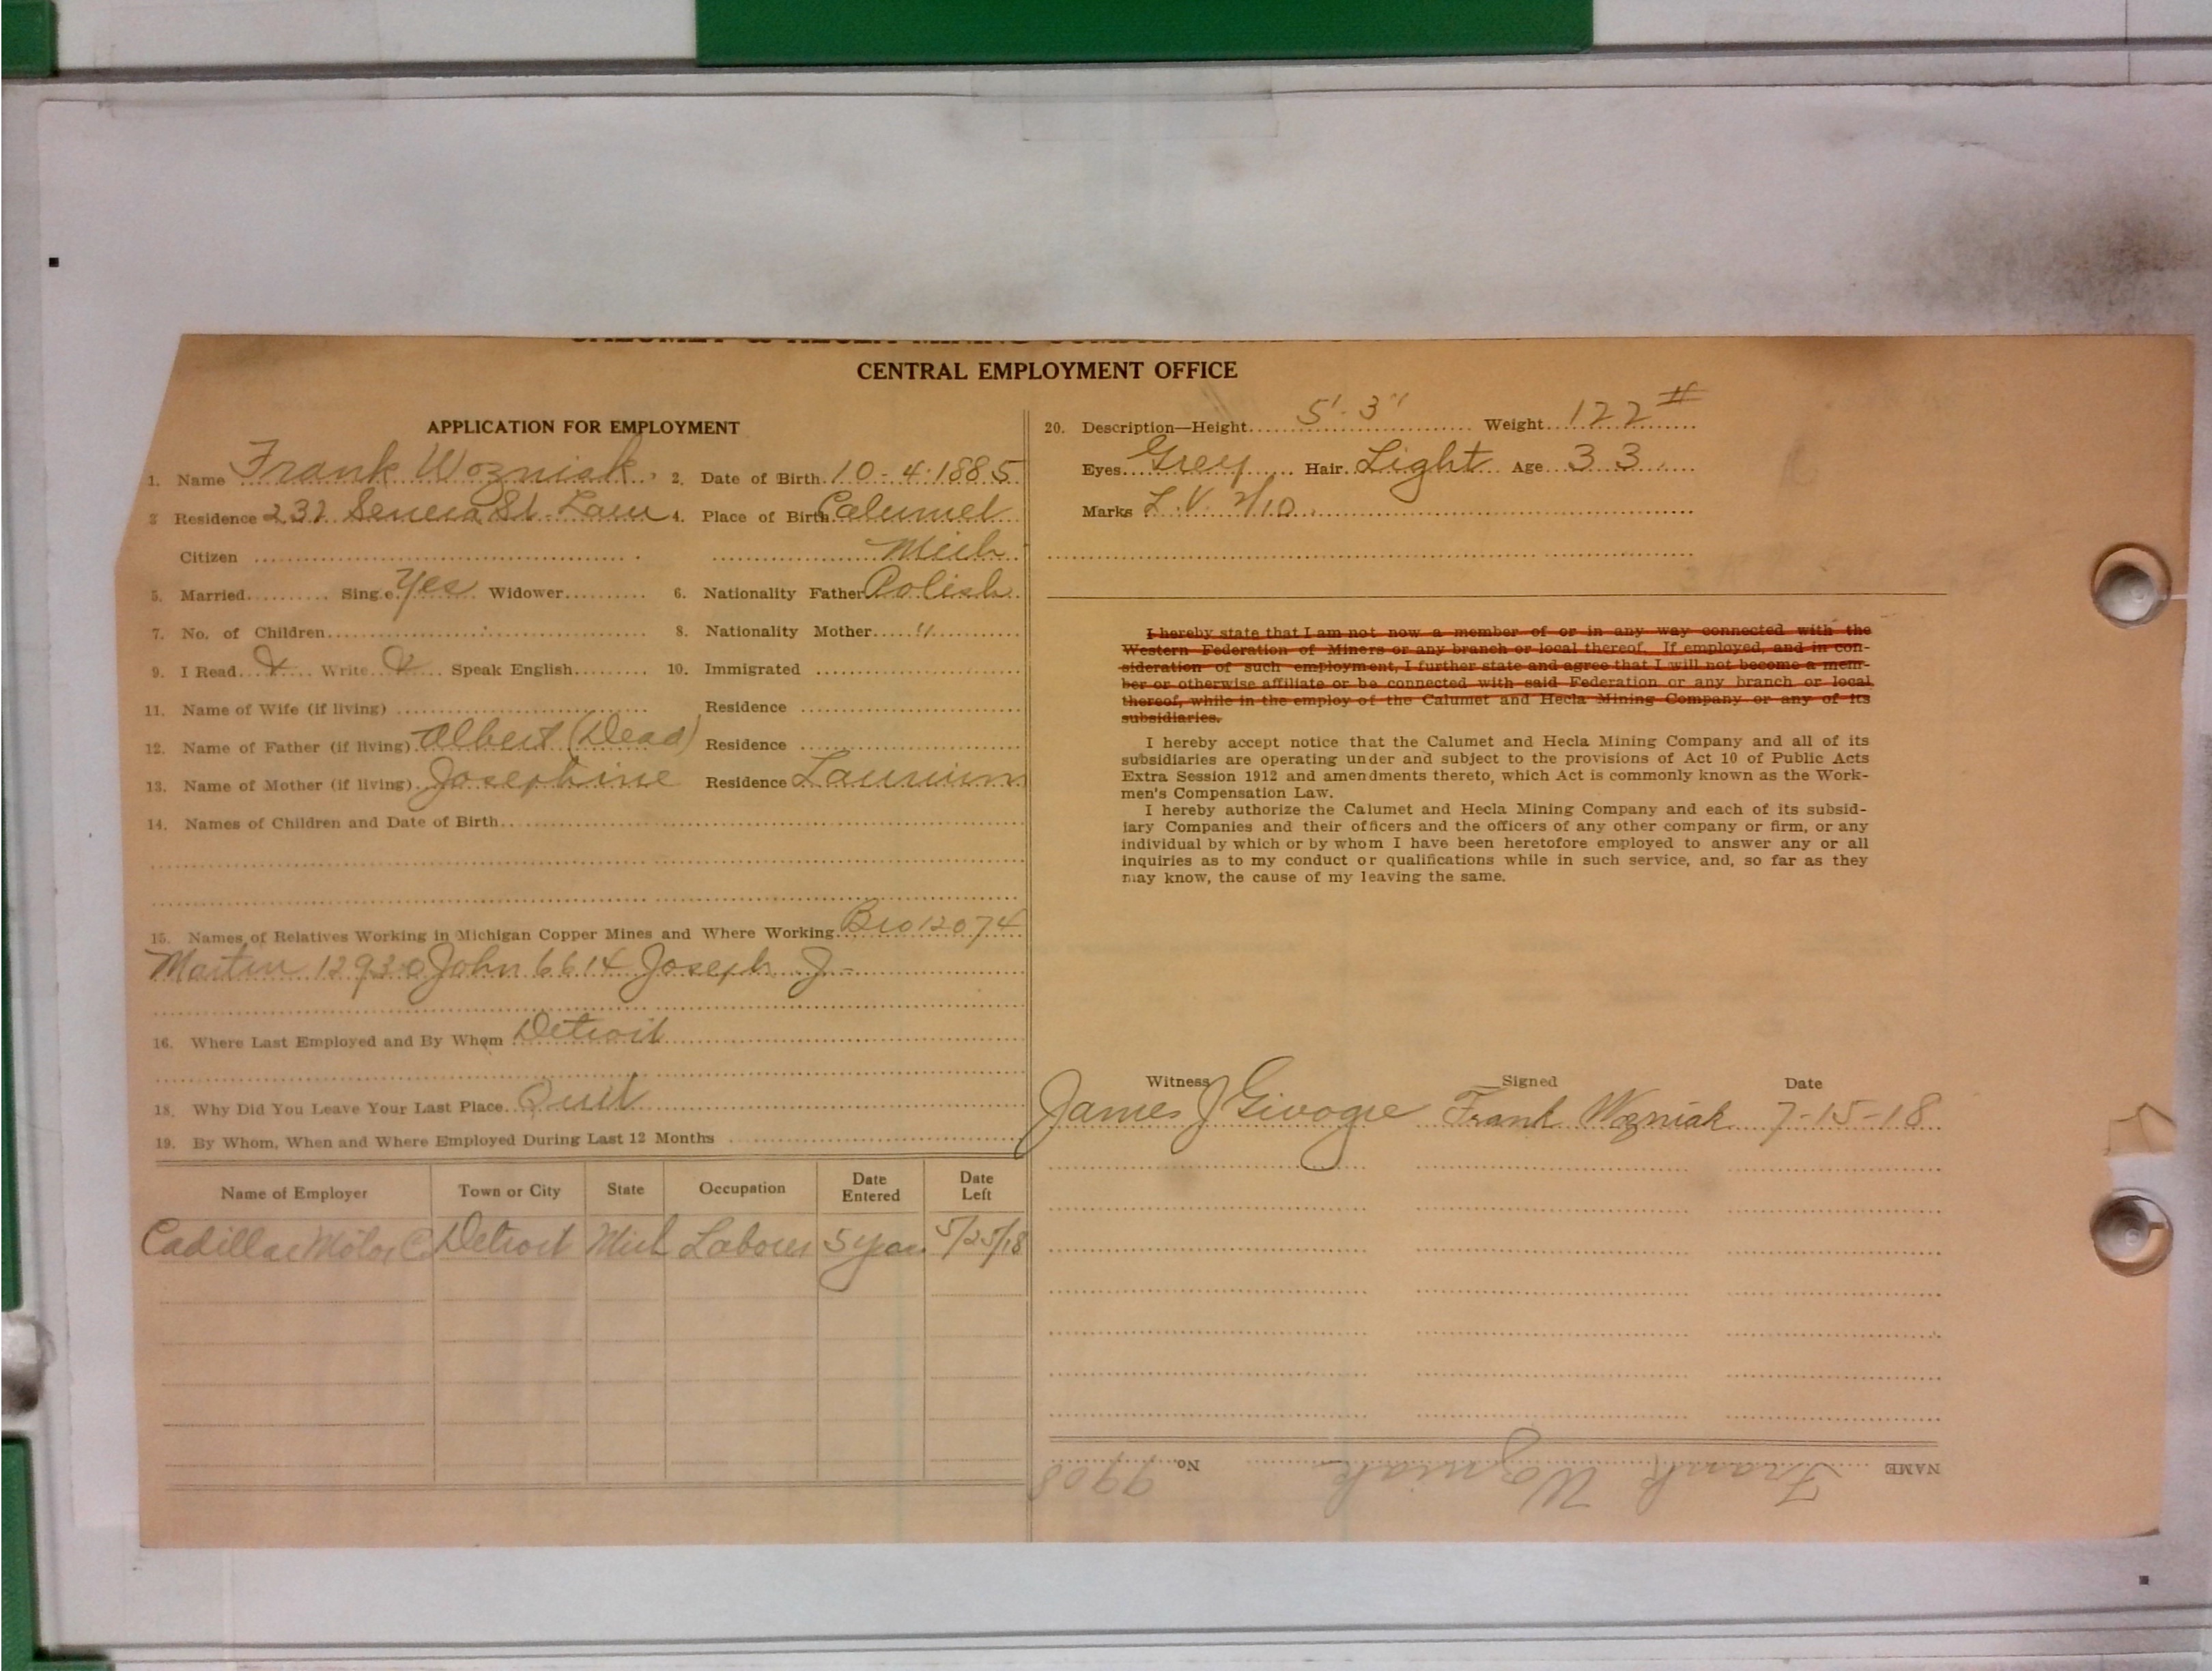 CENTRAL EMPLOYMENT OFFICE
APPLICATION FOR EMPLOYMENT
1. Name Frank Wozniak 2. Date of Birth 10-4-1885
3 Residence 232 Seneca St. Laur 4. Place of Birth Calumet
Citizen Mich
5. Married Single Yes Widower 6. Nationality Father Polish
7. No. of Children 8. Nationality Mother "
9. I Read Write Speak English 10. Immigrated
11. Name of Wife (if living) Residence
12. Name of Father (if living) Albert (Dead) Residence
13. Name of Mother (if living) Josephine Residence Laurium
14. Names of Children and Date of Birth
15. Names of Relatives Working in Michigan Copper Mines and Where Working Bro 12074
Martin 12930 John 6614 Joseph J-
16. Where Last Employed and By Whom Detroit
18. Why Did You Leave Your Last Place Quit
19. By Whom, When and Where Employed During Last 12 Months
Name of Employer Town or City State Occupation Date Entered Date Left
Cadillac Motor C. Detroit Mich Laborer 5 year 5/25/18
20. Description—Height 5'-3" Weight 122#
Eyes Grey Hair Light Age 33
Marks L.V. 2/10
I hereby state that I am not now a member of or in any way connected with the
Western Federation of Miners or any branch or local thereof. If employed, and in con-
sideration of such employment, I further state and agree that I will not become a mem-
ber or otherwise affiliate or be connected with said Federation or any branch or local
thereof, while in the employ of the Calumet and Hecla Mining Company or any of its
subsidiaries.
I hereby accept notice that the Calumet and Hecla Mining Company and all of its
subsidiaries are operating under and subject to the provisions of Act 10 of Public Acts
Extra Session 1912 and amendments thereto, which Act is commonly known as the Work-
men's Compensation Law.
I hereby authorize the Calumet and Hecla Mining Company and each of its subsid-
iary Companies and their officers and the officers of any other company or firm, or any
individual by which or by whom I have been heretofore employed to answer any or all
inquiries as to my conduct or qualifications while in such service, and, so far as they
may know, the cause of my leaving the same.
Witness Signed Date
James J Givogre Frank Wozniak 7-15-18
NAME Frank Wozniak No. 9908